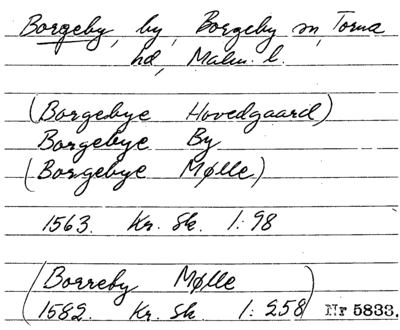 Borgeby, by, Borgeby sn, Torna
hd, Malm. l.
(Borgebye Hovedgaard)
Borgebye By
(Borgebye Mølle)
1563. Kr. Sk. 1:98
(Borreby Mølle
1582. Kr. Sk 1:258) Nr 5833.